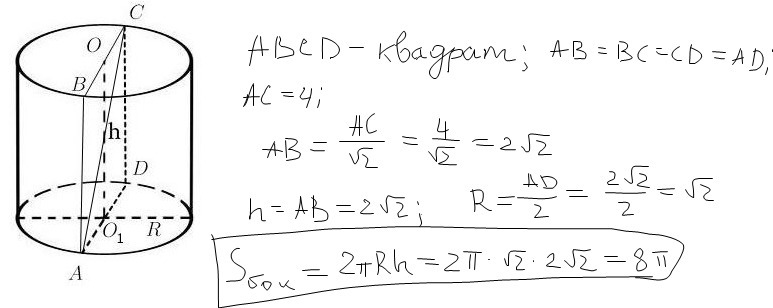 C
O
B
h
D
O₁
R
A
ABCD – квадрат; AB = BC = CD = AD;
AC = 4;
AB = AC/√2 = 4/√2 = 2√2
h = AB = 2√2; R = AD/2 = 2√2/2 = √2
Sбок = 2πRh = 2π · √2 · 2√2 = 8π